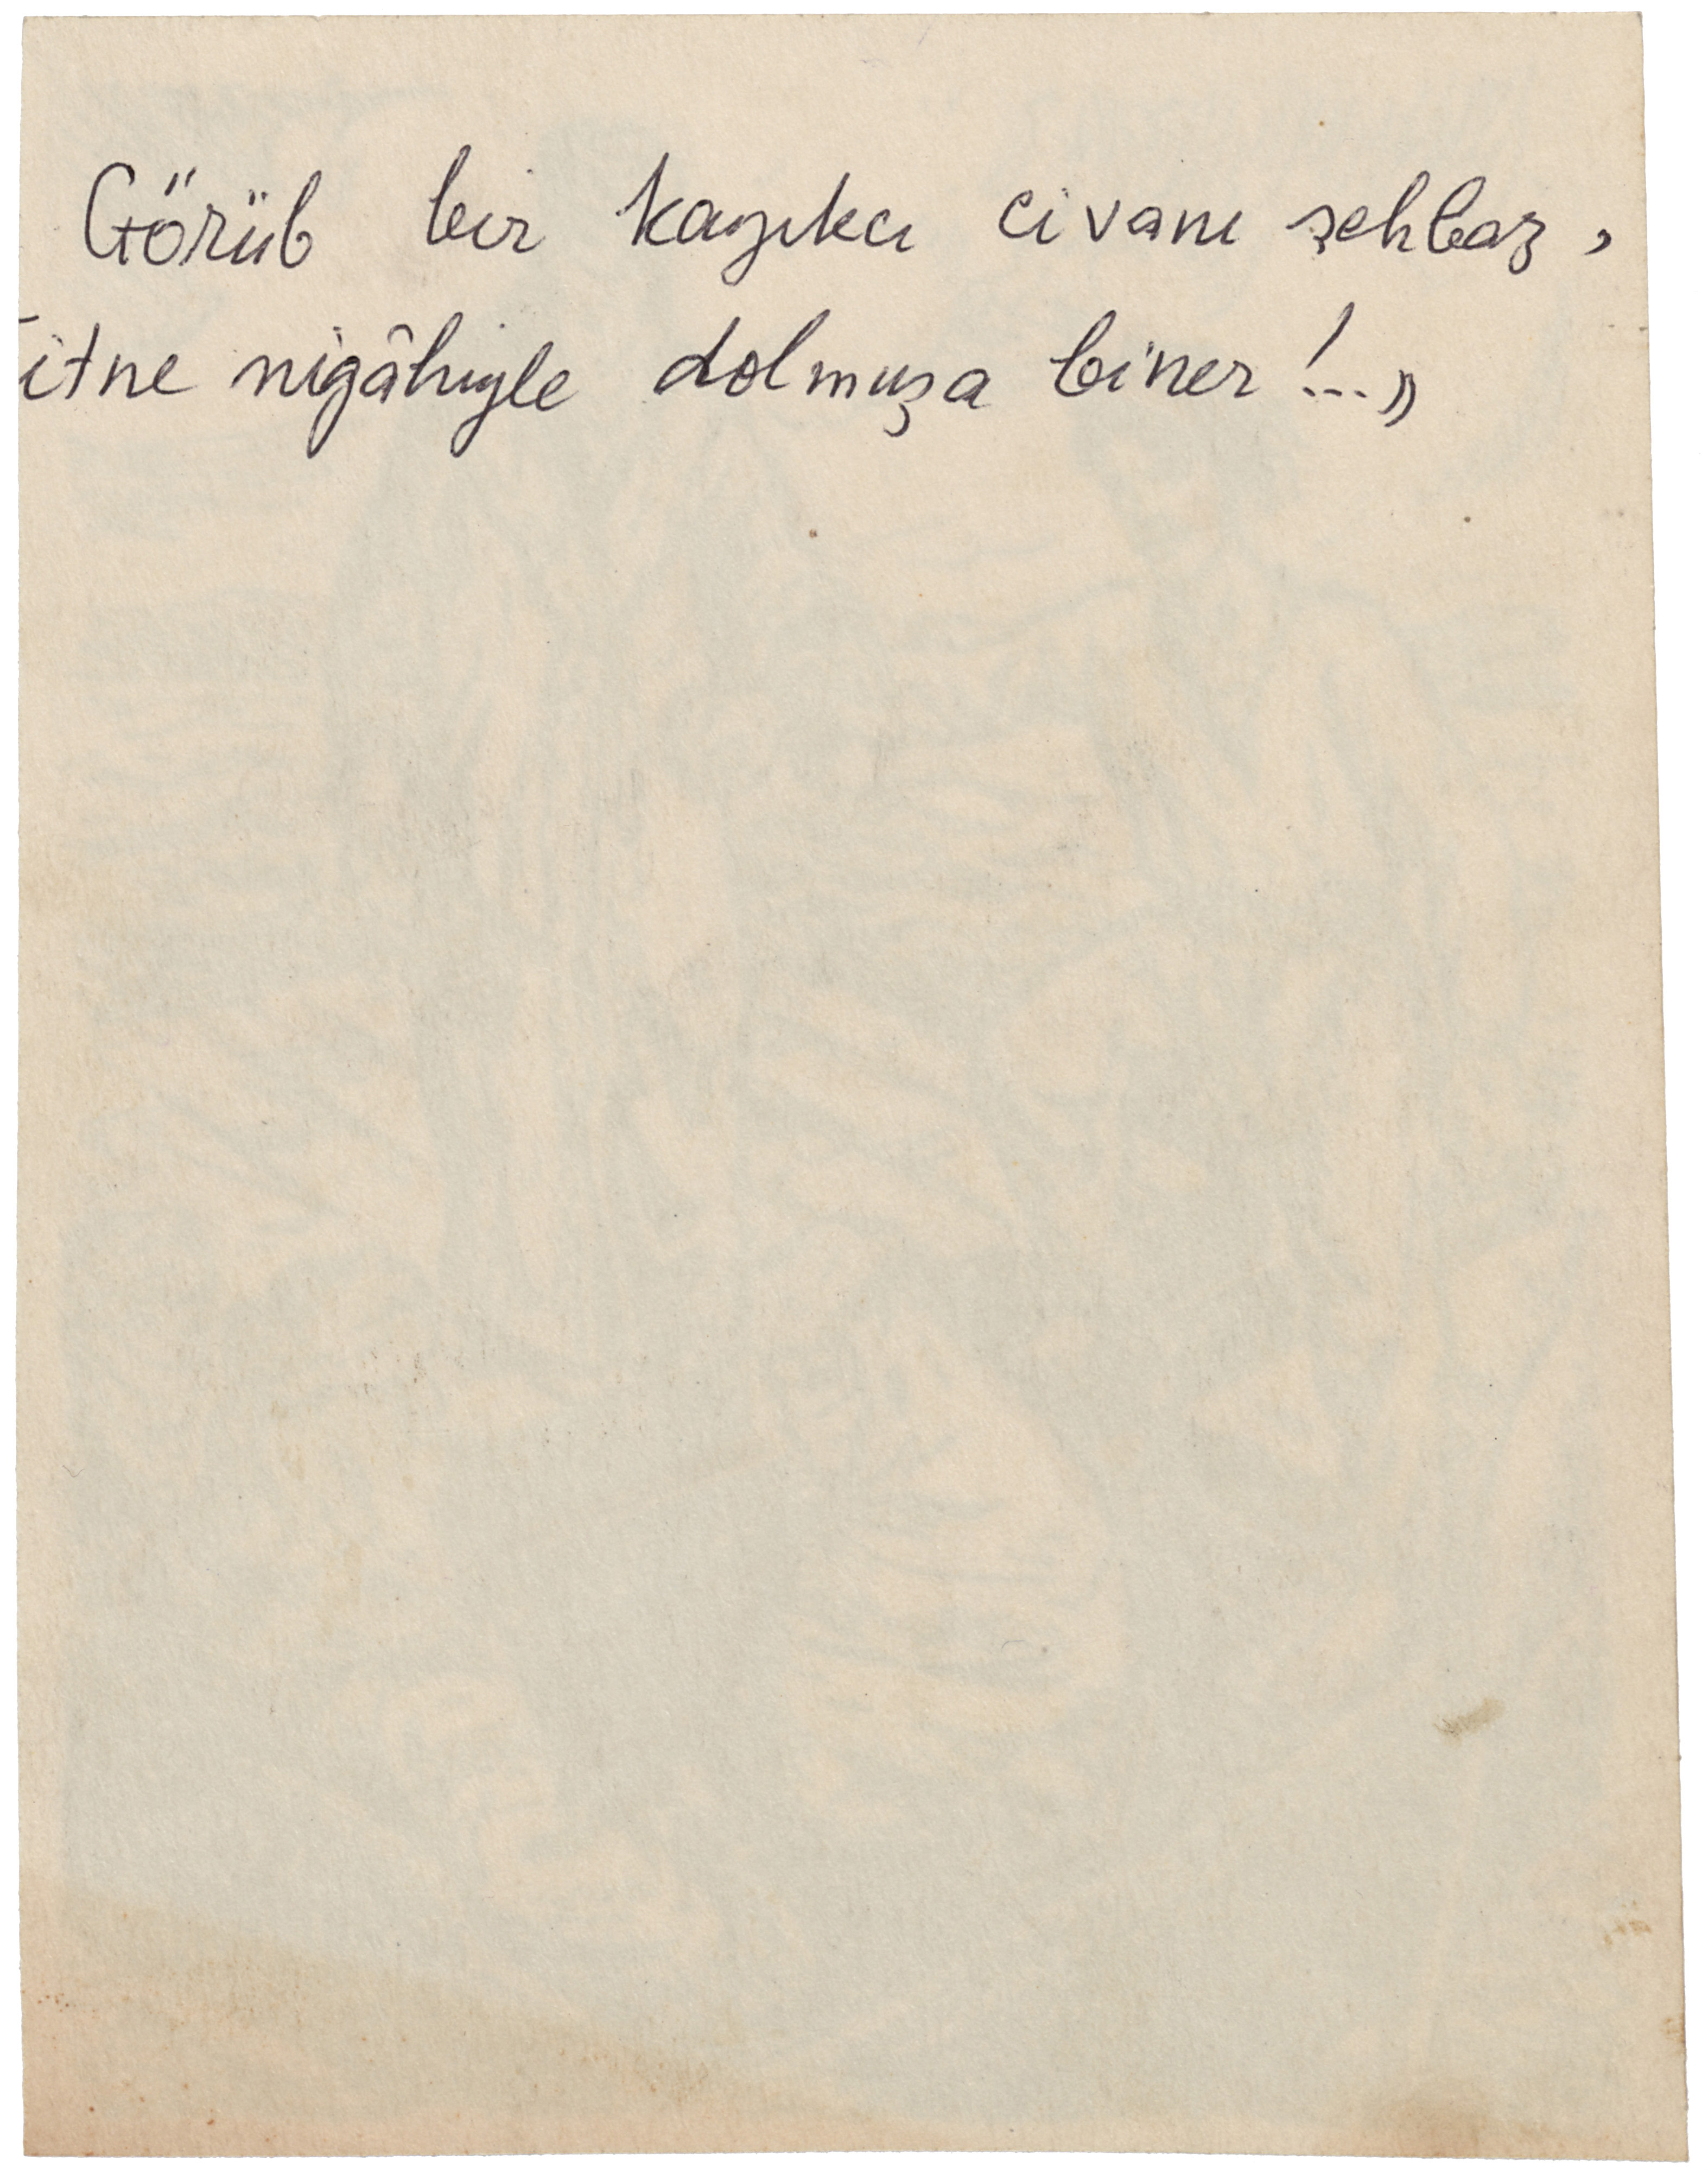 Görüb bir kayıkcı civanı şehbaz,
itne nigâhıyle dolmuşa biner!...»